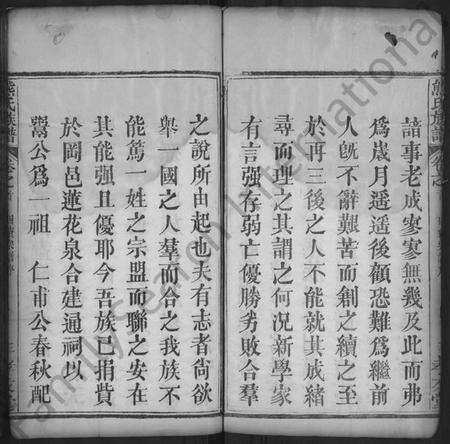 諳事老成寥寥無幾及此而弗
為歲月遥遥後顧恐難為繼前
人旣不辭艱苦而創之續之至
於再三後之人不能就其成緒
尋而理之其謂之何况新學家
有言强存弱亡優勝劣敗合羣
之說所由起也夫有志者尙欲
舉一國之人羣而合之我族不
能篤一姓之宗盟而聯之安在
其能强且優耶今吾族已捐貲
於岡邑蓮花泉合建通祠以
鬻公爲一祖 仁甫公春秋配
熊氏族譜
FamilySearch International